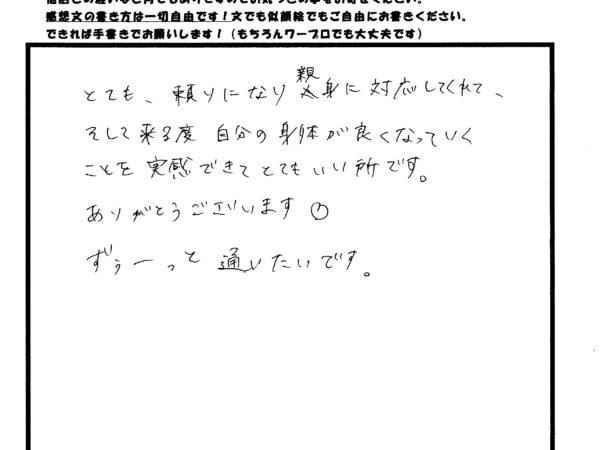 感想文の書き方は一切自由です！文でも似顔絵でもご自由にお書きください。
できれば手書きでお願いします！（もちろんワープロでも大丈夫です）
とても、頼りになり親身に対応してくれて、
そして来る度 自分の身体が良くなっていく
ことを実感できてとてもいい所です。
ありがとうございます
ずぅーっと 通いたいです。